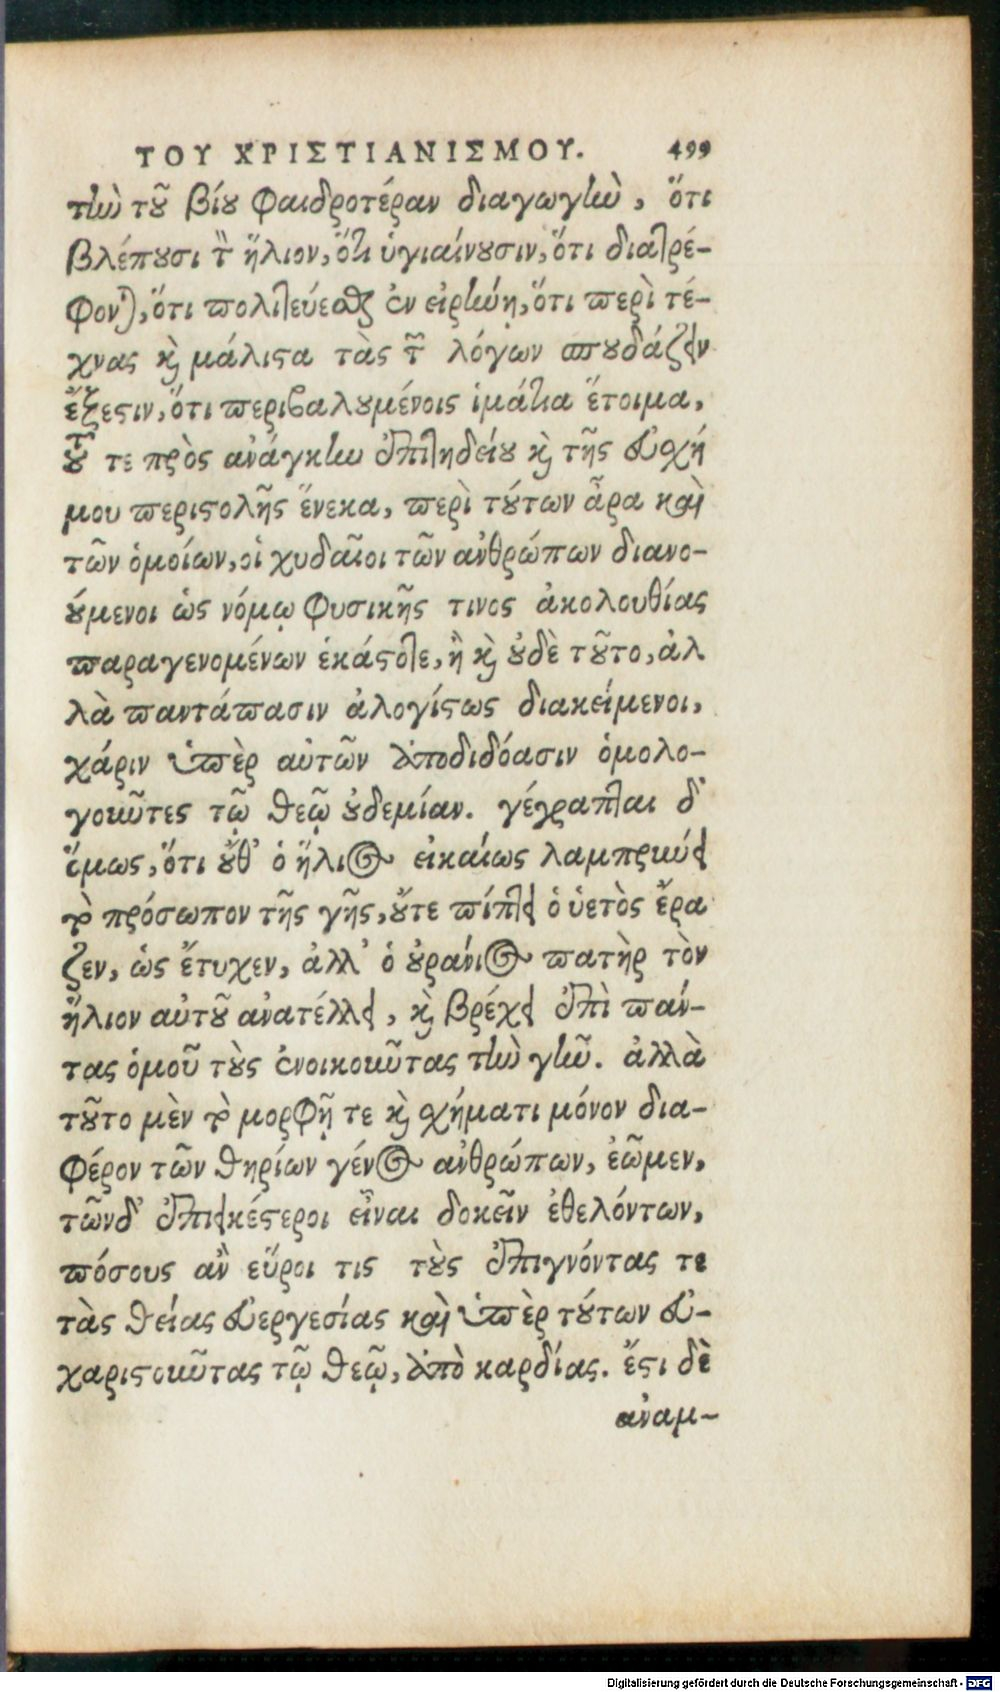 ΤΟΥ ΧΡΙΣΤΙΑΝΙΣΜΟΥ. 499
τὴν τοῦ βίου φαιδροτέραν διαγωγὴν, ὅτι
βλέπουσι τὸν ἥλιον, ὅτι ὑγιαίνουσιν, ὅτι διατρέ-
φονται, ὅτι πολιτεύεσθαι ἐν εἰρήνῃ, ὅτι περὶ τέ-
χνας καὶ μάλιστα τὰς τῶν λόγων σπουδάζειν
ἔξεστιν, ὅτι περιβαλουμένοις ἱμάτια ἕτοιμα,
τοῦ τε πρὸς ἀνάγκην ἐπιτηδείου καὶ τῆς εὐσχή
μου περιστολῆς ἕνεκα, περὶ τούτων ἆρα καὶ
τῶν ὁμοίων, οἱ χυδαῖοι τῶν ἀνθρώπων διανο-
ούμενοι ὡς νόμῳ φυσικῆς τινος ἀκολουθίας
παραγενομένων ἑκάστοτε, ἢ καὶ οὐδὲ τοῦτο, ἀλ
λὰ παντάπασιν ἀλογίστως διακείμενοι,
χάριν ὑπὲρ αὐτῶν ἀποδιδόασιν ὁμολο-
γοῦντες τῷ θεῷ οὐδεμίαν. γέγραπται δ'
ὅμως, ὅτι οὔθ' ὁ ἥλιος εἰκαίως λαμπρύνει
τὸ πρόσωπον τῆς γῆς, οὔτε πίπτει ὁ ὑετὸς ἔρα
ζεν, ὡς ἔτυχεν, ἀλλ' ὁ οὐράνιος πατὴρ τὸν
ἥλιον αὐτοῦ ἀνατέλλει, καὶ βρέχει ἐπὶ πάν-
τας ὁμοῦ τοὺς ἐνοικοῦντας τὴν γῆν. ἀλλὰ
τοῦτο μὲν τὸ μορφῇ τε καὶ σχήματι μόνον δια-
φέρον τῶν θηρίων γένος ἀνθρώπων, ἐῶμεν,
τῶνδ' ἐπιεικέστεροι εἶναι δοκεῖν ἐθελόντων,
πόσους ἂν εὕροι τις τοὺς ἐπιγνόντας τε
τὰς θείας εὐεργεσίας καὶ ὑπὲρ τούτων εὐ-
χαριστοῦντας τῷ θεῷ, ἀπὸ καρδίας. ἔστι δὲ
ἀναμ-
Digitalisierung gefördert durch die Deutsche Forschungsgemeinschaft - DFG